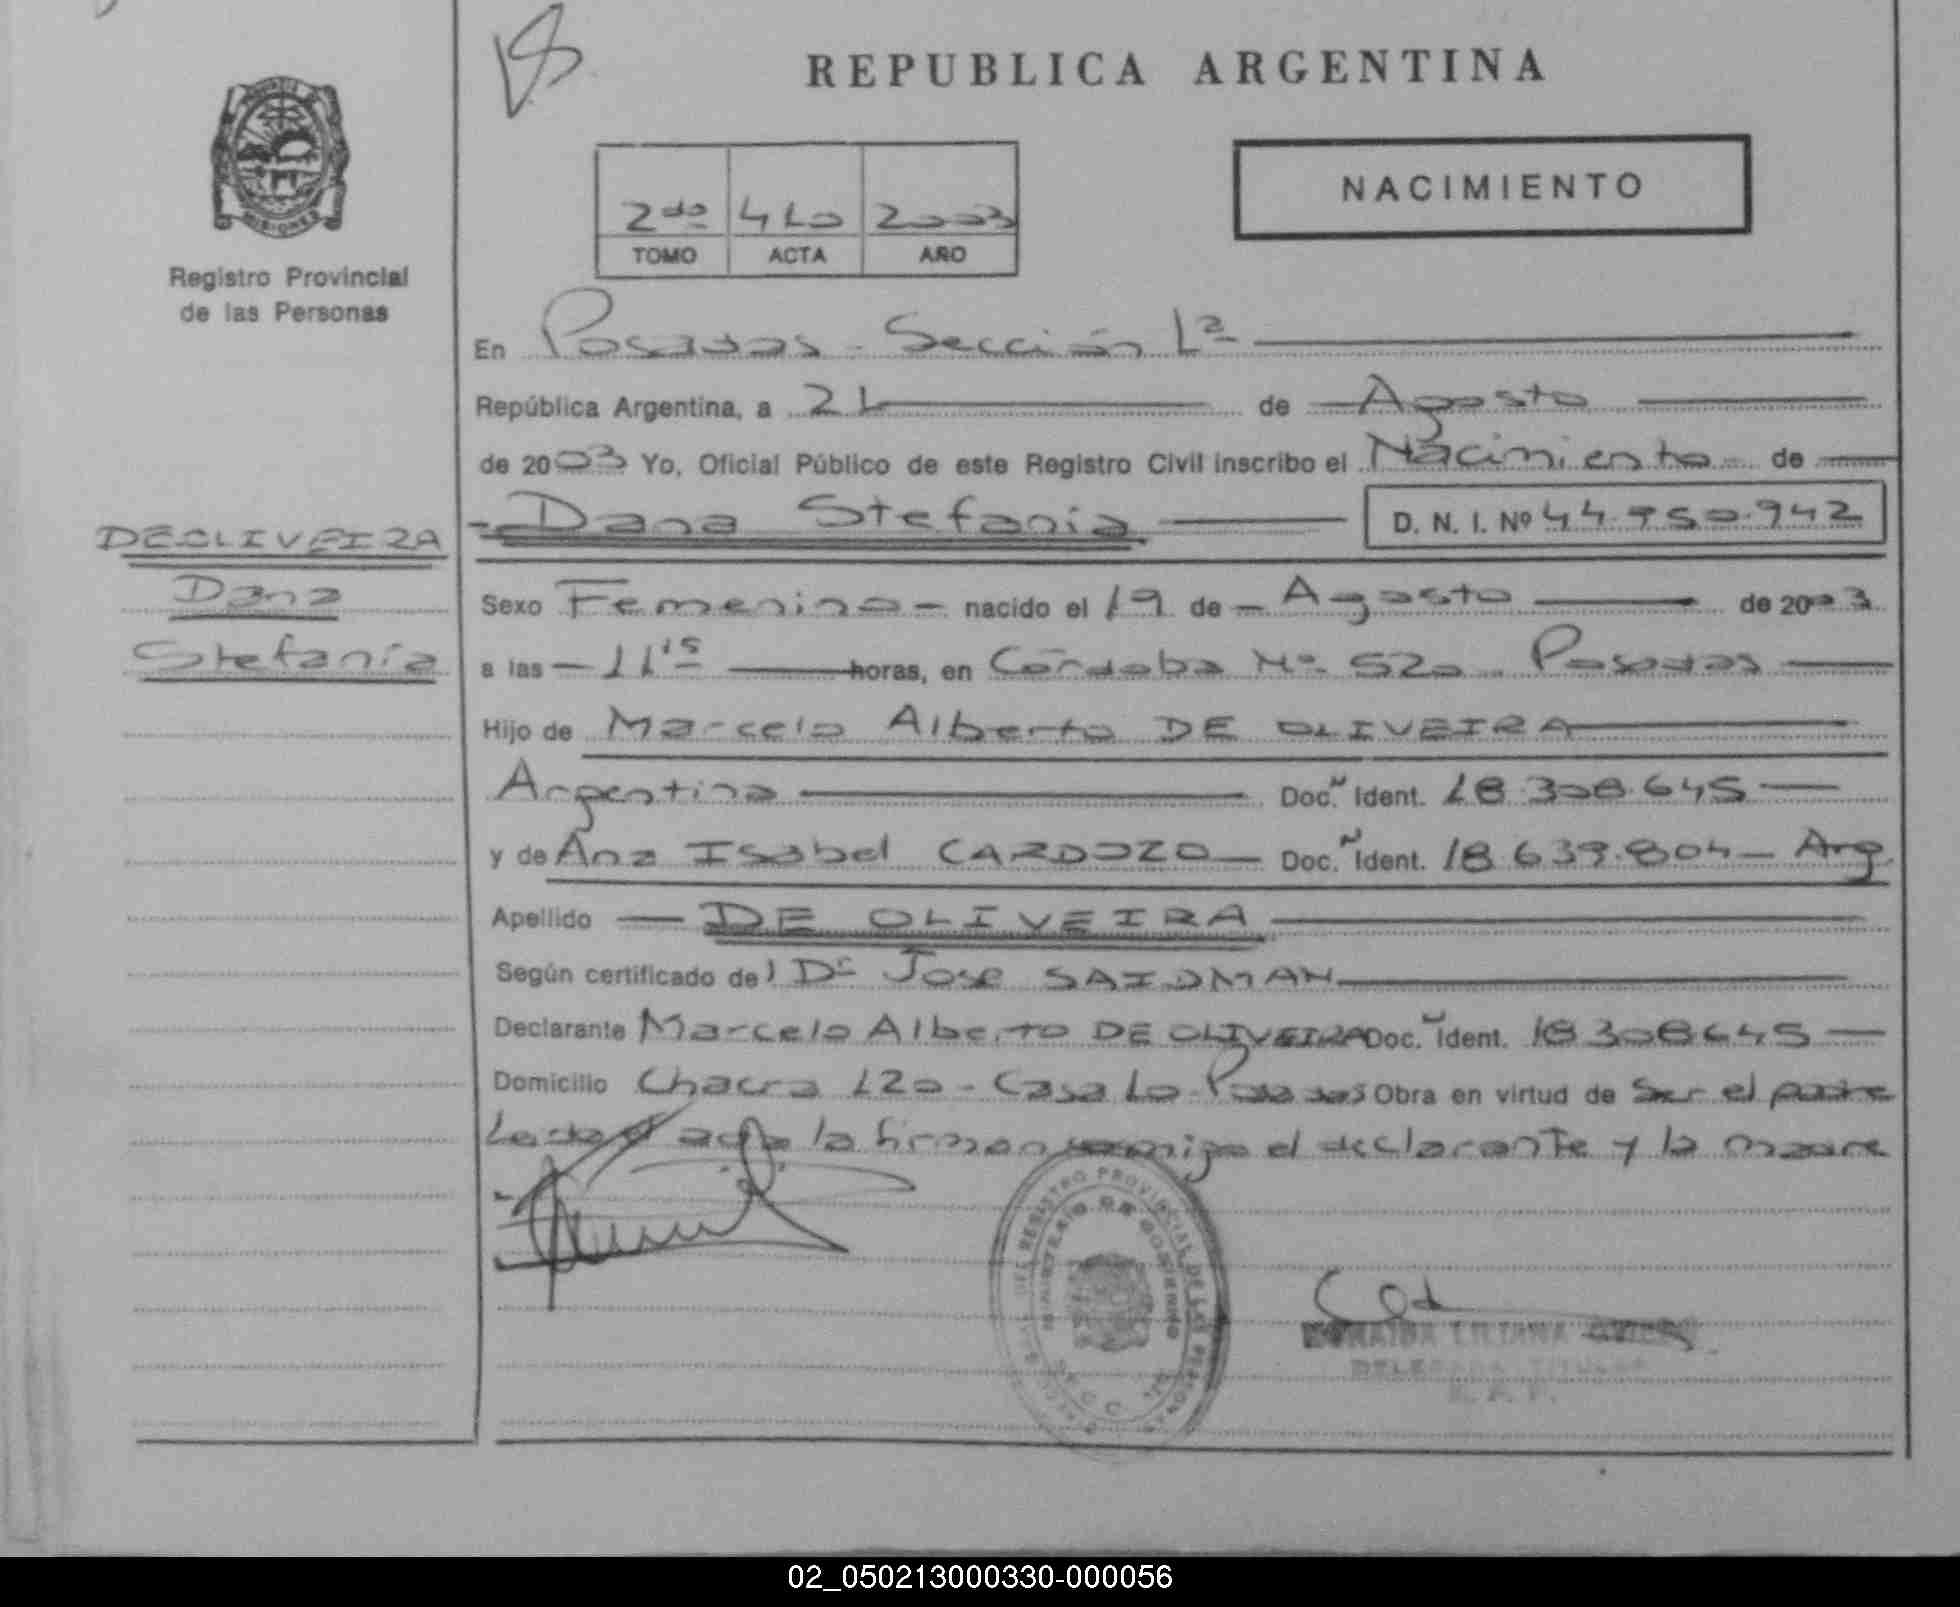 REPUBLICA ARGENTINA
NACIMIENTO
2do 410 2003
TOMO ACTA AÑO
MISIONES
Registro Provincial
de las Personas
En Posadas - Sección 1ª
República Argentina, a 21 de Agosto
de 2003 Yo, Oficial Público de este Registro Civil inscribo el Nacimiento de
Dana Stefania D. N. I. Nº 44.950.942
DEOLIVEIRA
Dana
Stefanía
Sexo Femenino - nacido el 19 de - Agosto de 2003
a las - 11 15 horas, en Córdoba Nº 520 Posadas
Hijo de Marcelo Alberto DE OLIVEIRA
Argentina Doc. Ident. 18.308.645
y de Ana Isabel CARDOZO Doc. Ident. 18.639.804 - Arg.
Apellido DE OLIVEIRA
Según certificado de Dr José SAIDMAN
Declarante Marcelo Alberto DE OLIVEIRA Doc. Ident. 18308645
Domicilio Chacra 120 - Casa 10 Posadas Obra en virtud de Ser el padre
acta la firman conmigo el declarante y la madre
REGISTRO PROVINCIAL DE LAS PERSONAS
MINISTERIO DE GOBIERNO
LILIANA
DELEGADA TITULAR
02_050213000330-000056